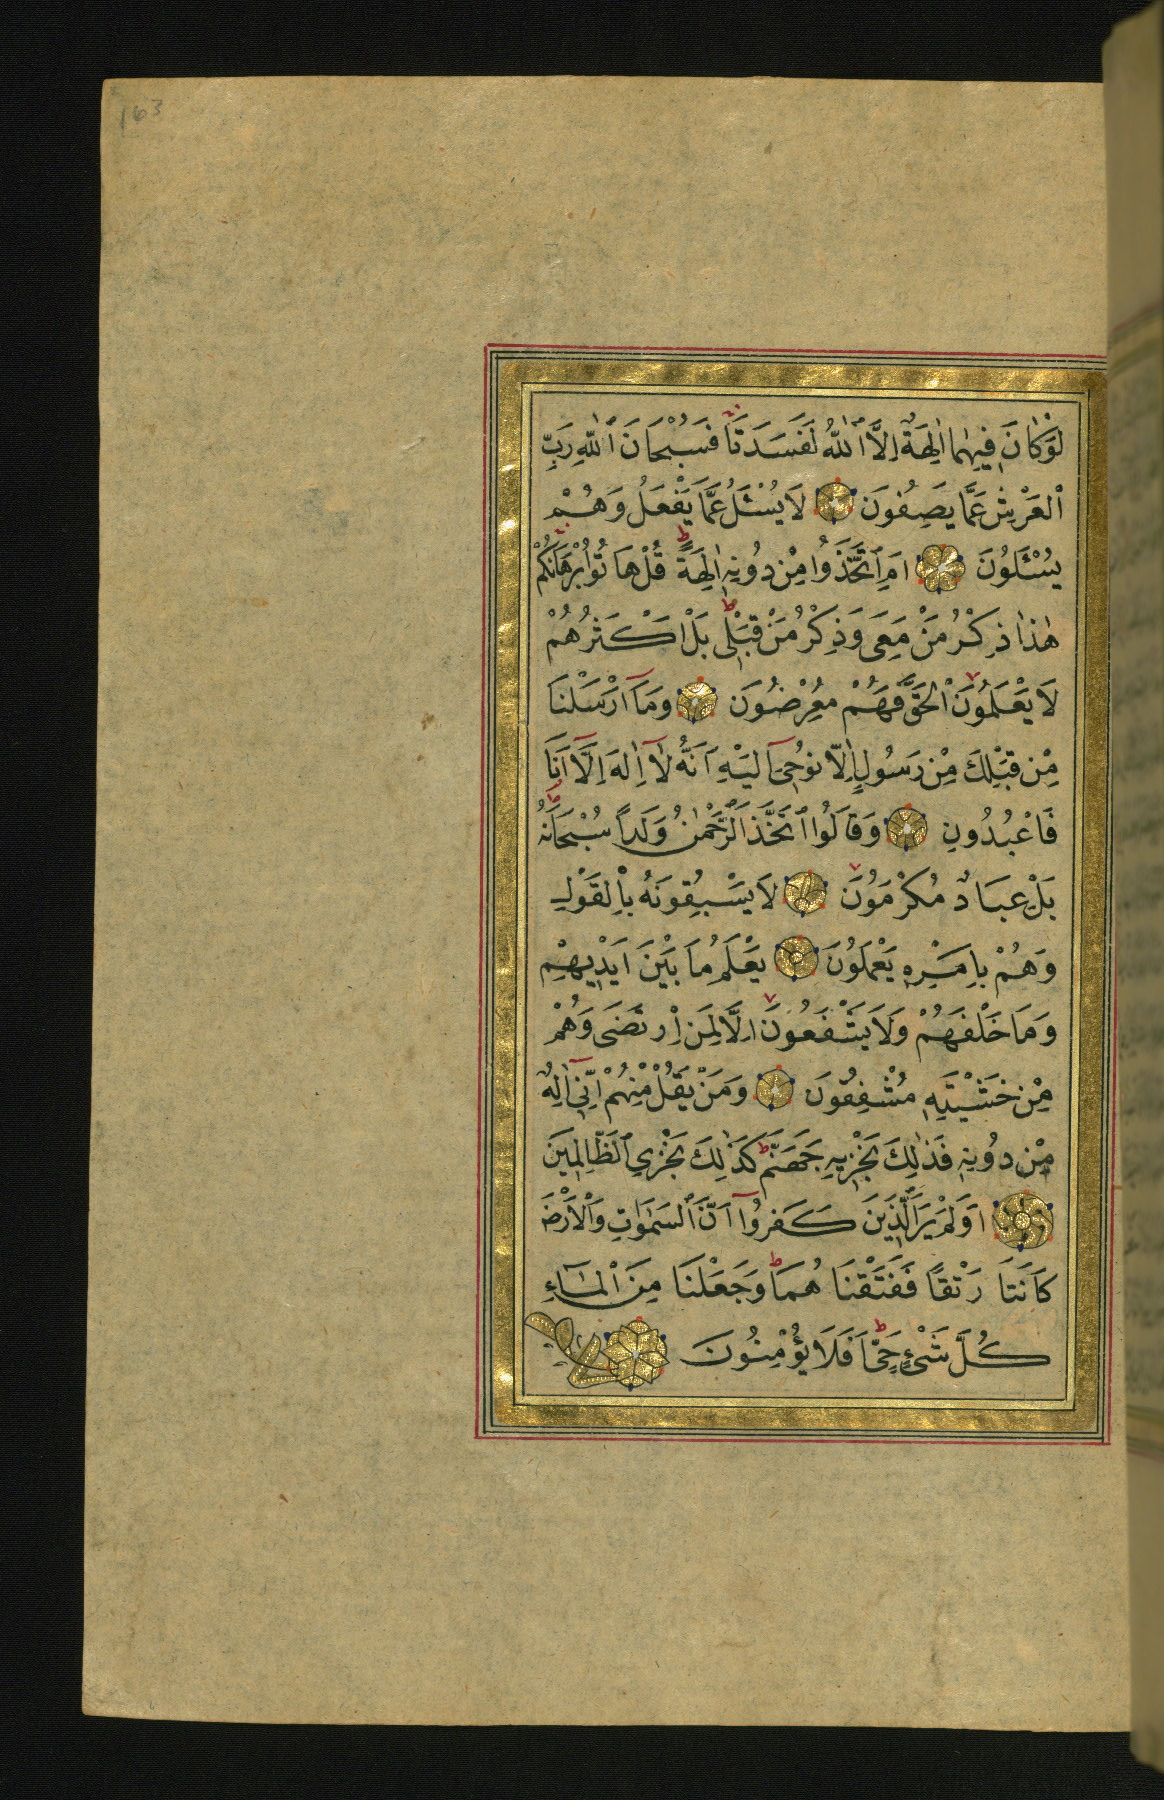 163
لَوْ كَانَ فِيهِمَا اٰلِهَةٌ اِلَّا اللّٰهُ لَفَسَدَتَا فَسُبْحَانَ اللّٰهِ رَبِّ
الْعَرْشِ عَمَّا يَصِفُونَ لَا يُسْئَلُ عَمَّا يَفْعَلُ وَهُمْ
يُسْئَلُونَ اَمِ اتَّخَذُوا مِنْ دُونِهِ اٰلِهَةً قُلْ هَاتُوا بُرْهَانَكُمْ
هٰذَا ذِكْرُ مَنْ مَعِيَ وَذِكْرُ مَنْ قَبْلِى بَلْ اَكْثَرُهُمْ
لَا يَعْلَمُونَ الْحَقَّ فَهُمْ مُعْرِضُونَ وَمَا اَرْسَلْنَا
مِنْ قَبْلِكَ مِنْ رَسُولٍ اِلَّا نُوحِى اِلَيْهِ اَنَّهُ لَا اِلٰهَ اِلَّا اَنَا
فَاعْبُدُونِ وَقَالُوا اتَّخَذَ الرَّحْمٰنُ وَلَدًا سُبْحَانَهُ
بَلْ عِبَادٌ مُكْرَمُونَ لَا يَسْبِقُونَهُ بِالْقَوْلِ
وَهُمْ بِاَمْرِهِ يَعْمَلُونَ يَعْلَمُ مَا بَيْنَ اَيْدِيهِمْ
وَمَا خَلْفَهُمْ وَلَا يَشْفَعُونَ اِلَّا لِمَنِ ارْتَضَى وَهُمْ
مِنْ خَشْيَتِهِ مُشْفِقُونَ وَمَنْ يَقُلْ مِنْهُمْ اِنِّى اِلٰهٌ
مِنْ دُونِهِ فَذٰلِكَ نَجْزِيهِ جَهَنَّمَ كَذٰلِكَ نَجْزِى الظَّالِمِينَ
اَوَلَمْ يَرَ الَّذِينَ كَفَرُوا اَنَّ السَّمٰوَاتِ وَالْاَرْضَ
كَانَتَا رَتْقًا فَفَتَقْنَاهُمَا وَجَعَلْنَا مِنَ الْمَاءِ
كُلَّ شَىْءٍ حَىٍّ اَفَلَا يُؤْمِنُونَ